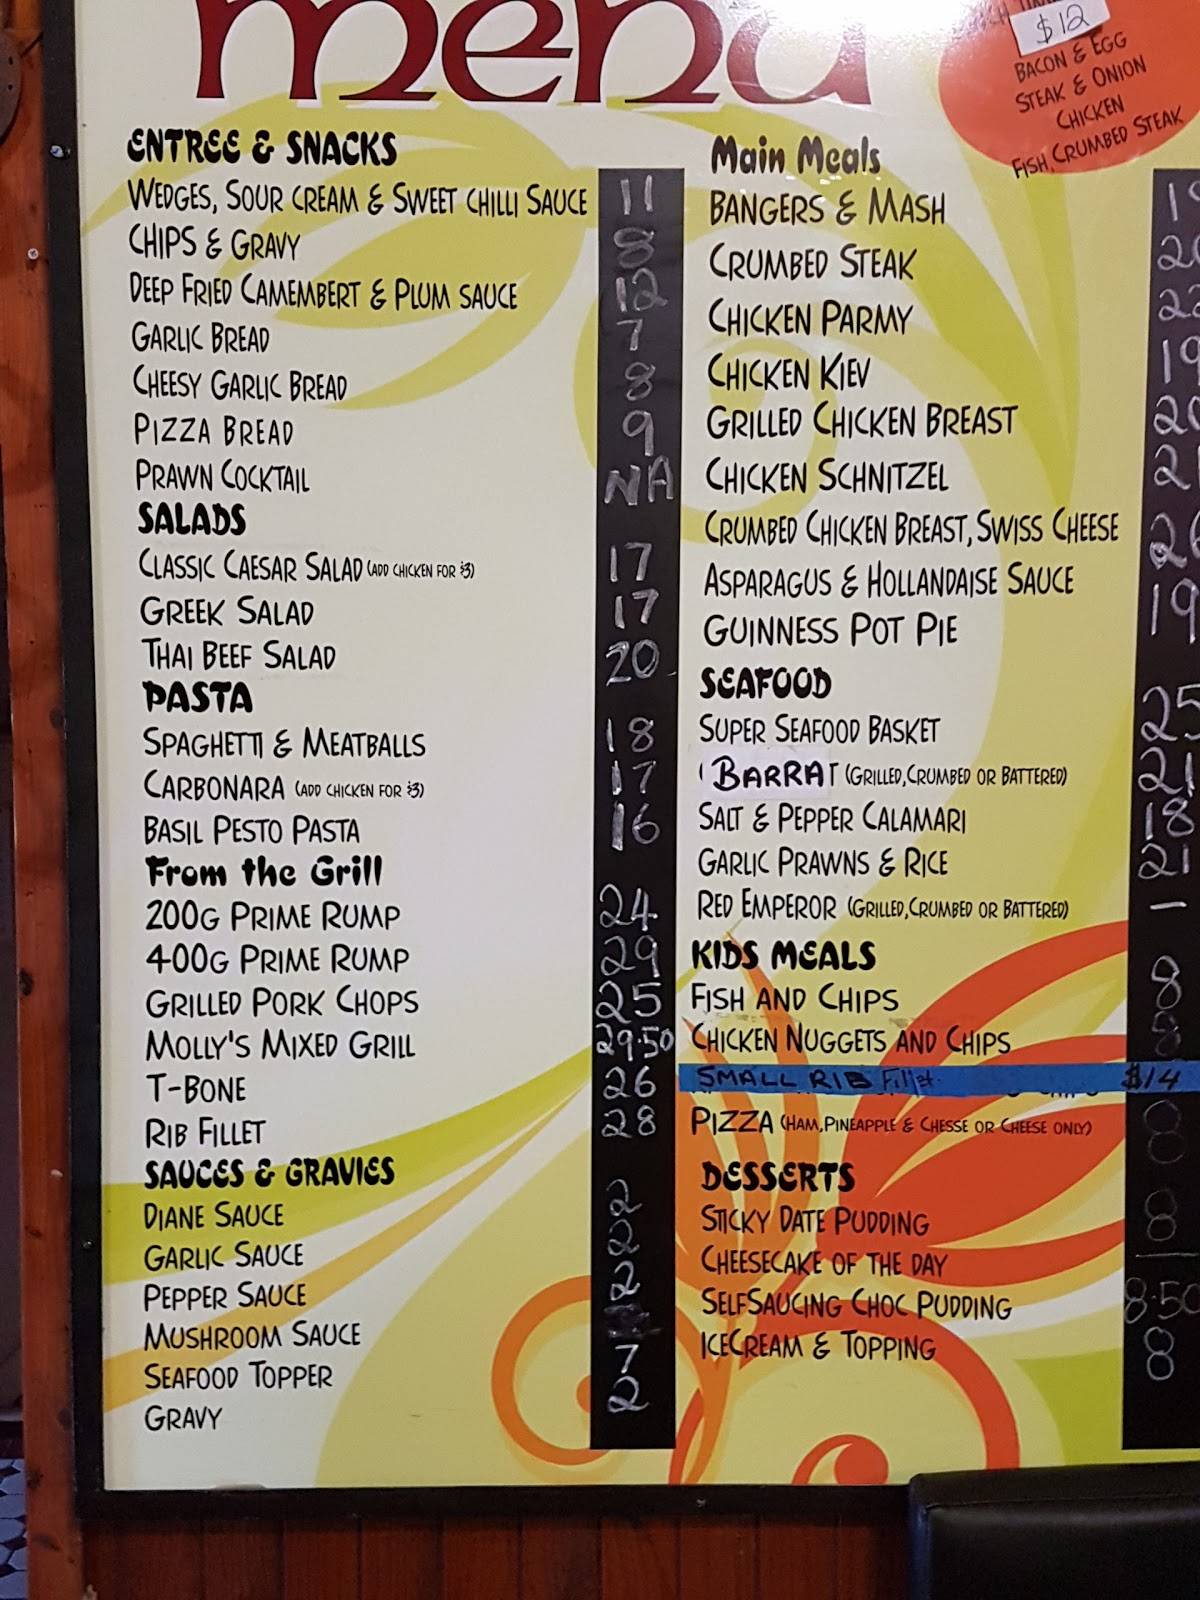 menu
$12
BACON & EGG
STEAK & ONION
CHICKEN
FISH, CRUMBED STEAK
ENTREE & SNACKS
WEDGES, SOUR CREAM & SWEET CHILLI SAUCE 11
CHIPS & GRAVY 8
DEEP FRIED CAMEMBERT & PLUM SAUCE 12
GARLIC BREAD 7
CHEESY GARLIC BREAD 8
PIZZA BREAD 9
PRAWN COCKTAIL NA
SALADS
CLASSIC CAESAR SALAD (ADD CHICKEN FOR $3) 17
GREEK SALAD 17
THAI BEEF SALAD 20
PASTA
SPAGHETTI & MEATBALLS 18
CARBONARA (ADD CHICKEN FOR $3) 17
BASIL PESTO PASTA 16
From the Grill
200G PRIME RUMP 24
400G PRIME RUMP 29
GRILLED PORK CHOPS 25
MOLLY'S MIXED GRILL 29.50
T-BONE 26
RIB FILLET 28
SAUCES & GRAVIES
DIANE SAUCE 2
GARLIC SAUCE 2
PEPPER SAUCE 2
MUSHROOM SAUCE
SEAFOOD TOPPER 7
GRAVY 2
Main Meals
BANGERS & MASH
CRUMBED STEAK
CHICKEN PARMY
CHICKEN KIEV 19
GRILLED CHICKEN BREAST
CHICKEN SCHNITZEL
CRUMBED CHICKEN BREAST, SWISS CHEESE
ASPARAGUS & HOLLANDAISE SAUCE
GUINNESS POT PIE 19
SEAFOOD
SUPER SEAFOOD BASKET 25
BARRA (GRILLED, CRUMBED OR BATTERED) 21
SALT & PEPPER CALAMARI 18
GARLIC PRAWNS & RICE 21
RED EMPEROR (GRILLED, CRUMBED OR BATTERED) -
KIDS MEALS
FISH AND CHIPS 8
CHICKEN NUGGETS AND CHIPS 8
SMALL RIB Fillet $14
PIZZA (HAM, PINEAPPLE & CHESSE OR CHEESE ONLY) 8
DESSERTS
STICKY DATE PUDDING 8
CHEESECAKE OF THE DAY
SELFSAUCING CHOC PUDDING 8.50
ICECREAM & TOPPING 8